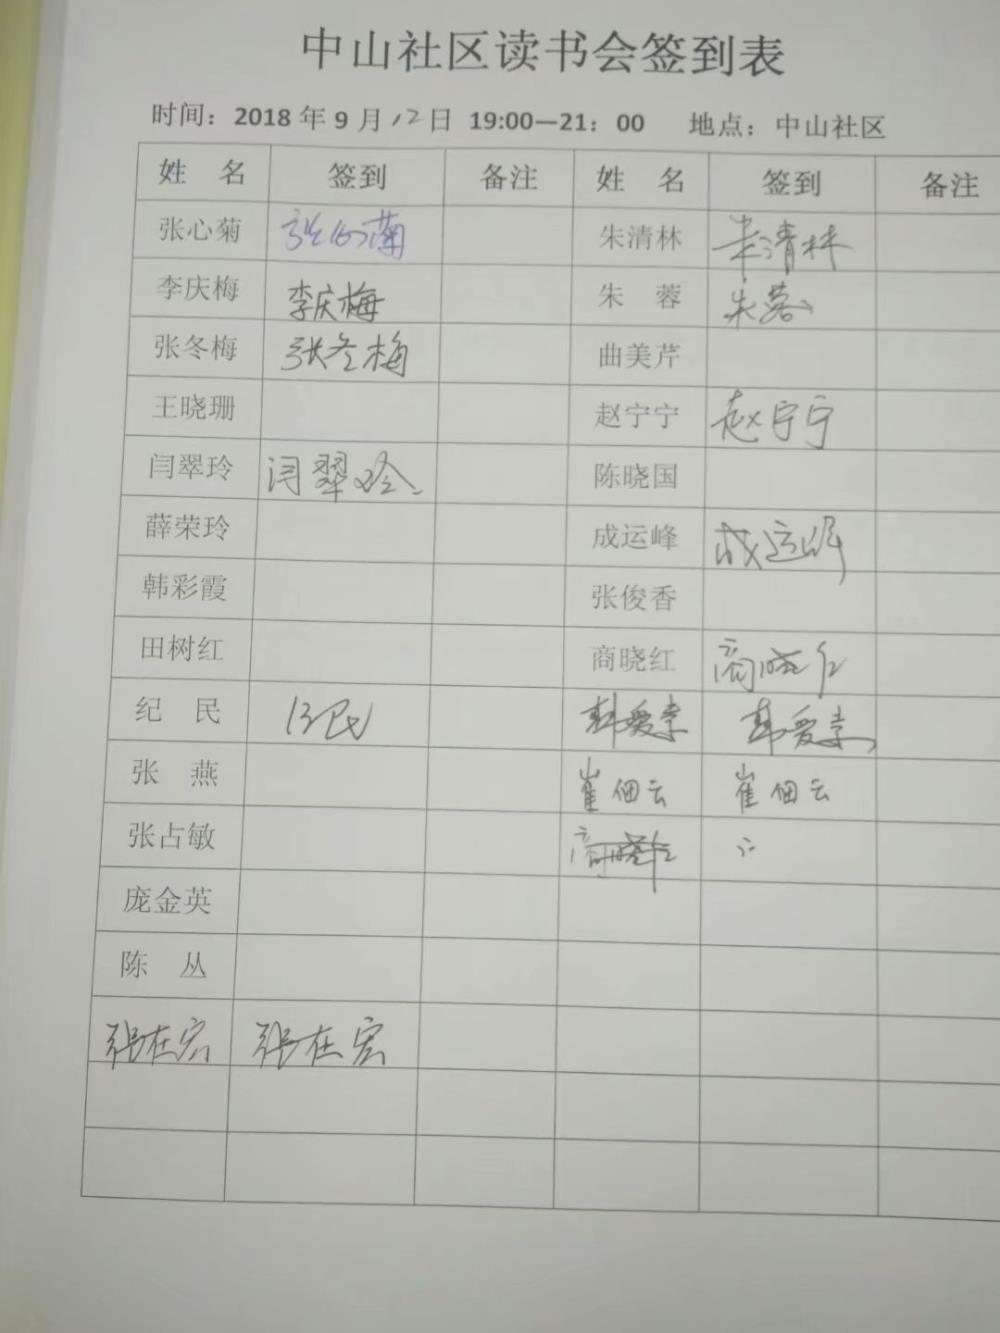 中山社区读书会签到表
时间：2018 年 9 月 12 日 19:00—21：00 地点：中山社区
姓 名 签到 备注 姓 名 签到 备注
张心菊 张心菊 朱清林 朱清林
李庆梅 李庆梅 朱 蓉 朱蓉
张冬梅 张冬梅 曲美芹
王晓珊 赵宁宁 赵宁宁
闫翠玲 闫翠玲 陈晓国
薛荣玲 成运峰 成运峰
韩彩霞 张俊香
田树红 商晓红 商晓红
纪 民 纪民 韩爱 韩爱
张 燕 崔佃云 崔佃云
张占敏
庞金英
陈 丛
张在宏 张在宏